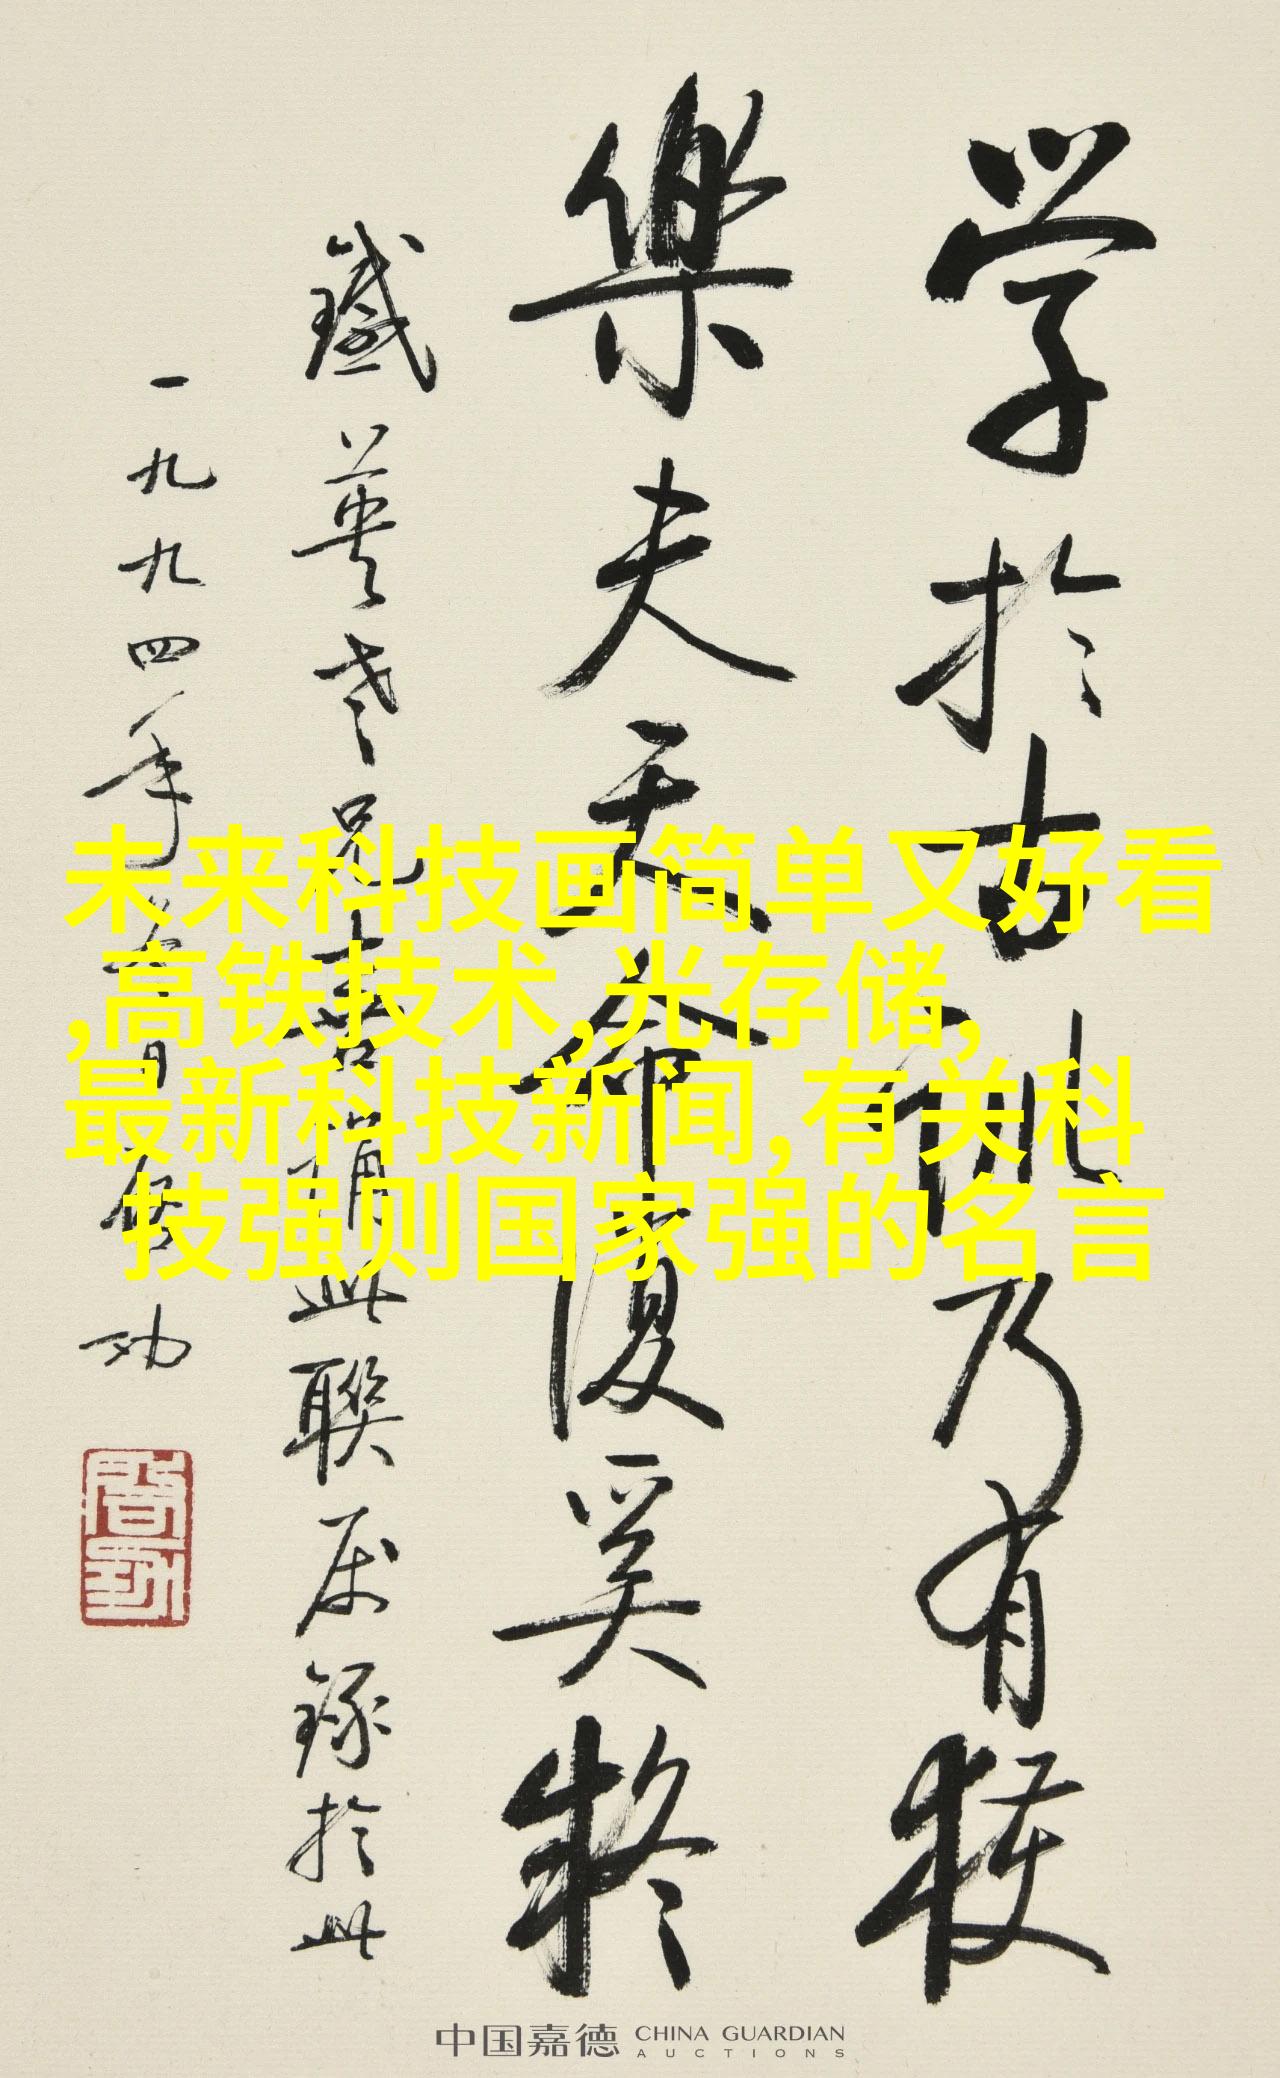 学於古訓乃有獲
樂夫天命復奚疑
鐵英老兄喜誦此聯屬錄於此
一九九四年 啓功
未来科技画简单又好看
,高铁技术,光存储,
最新科技新闻,有关科
技强则国家强的名言
中国嘉德 CHINA GUARDIAN
AUCTIONS